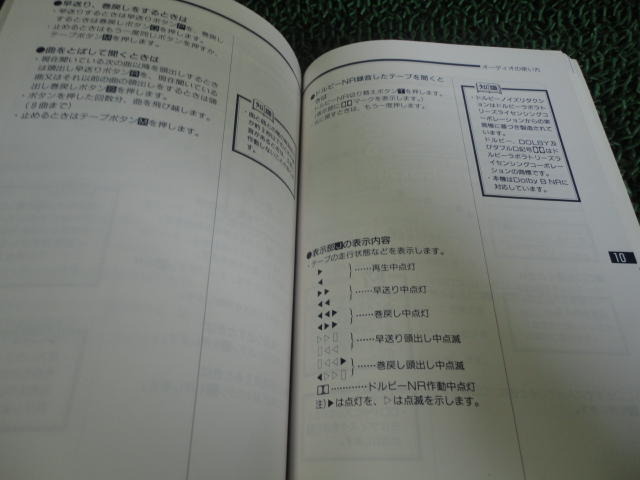 ●早送り、巻戻しをするときは
・早送りするときは早送りボタンRを、巻戻し
するときは巻戻しボタンQを押します。
・止めるときはもう一度同じボタンを押すか、
テープボタンMを押します。
●曲をとばして聞くときは
・現在聞いている次の曲以降を頭出しするとき
は頭出し早送りボタンRを、現在聞いている
曲又はそれ以前の曲の頭出しをするときは頭
出し巻戻しボタンQを押します。
・ボタンを押した回数分、曲を飛び越します。
(8曲まで)
・止めるときはテープボタンMを押します。
知識
オーディオの使い方
●ドルビーNR録音したテープを聞くと
きは
ドルビーNR切り替えボタンTを押します。
(表示部にマークを表示します。)
元に戻すときは、もう一度押します。
知識
・ドルビーノイズリダクシ
ョンはドルビーラボラト
リーズライセンシングコ
ーポレーションからの実
施権に基づき製造されて
います。
ドルビー、DOLBY及
びダブルD記号はド
ルビーラボラトリーズラ
イセンシングコーポレー
ションの商標です。
・本機はDolby B NRに
対応しています。
●表示部Jの表示内容
・テープの走行状態などを表示します。
▶
◀ }……再生中点灯
▶▶
◀◀ }……早送り中点灯
◀◀▶
◀▶▶ }……巻戻し中点灯
▷▷▯
▯◁◁ }……早送り頭出し中点滅
▯◁◁▶
◀▷▷▯ }……巻戻し頭出し中点滅
…………ドルビーNR作動中点灯
注)▶は点灯を、▷は点滅を示します。
10